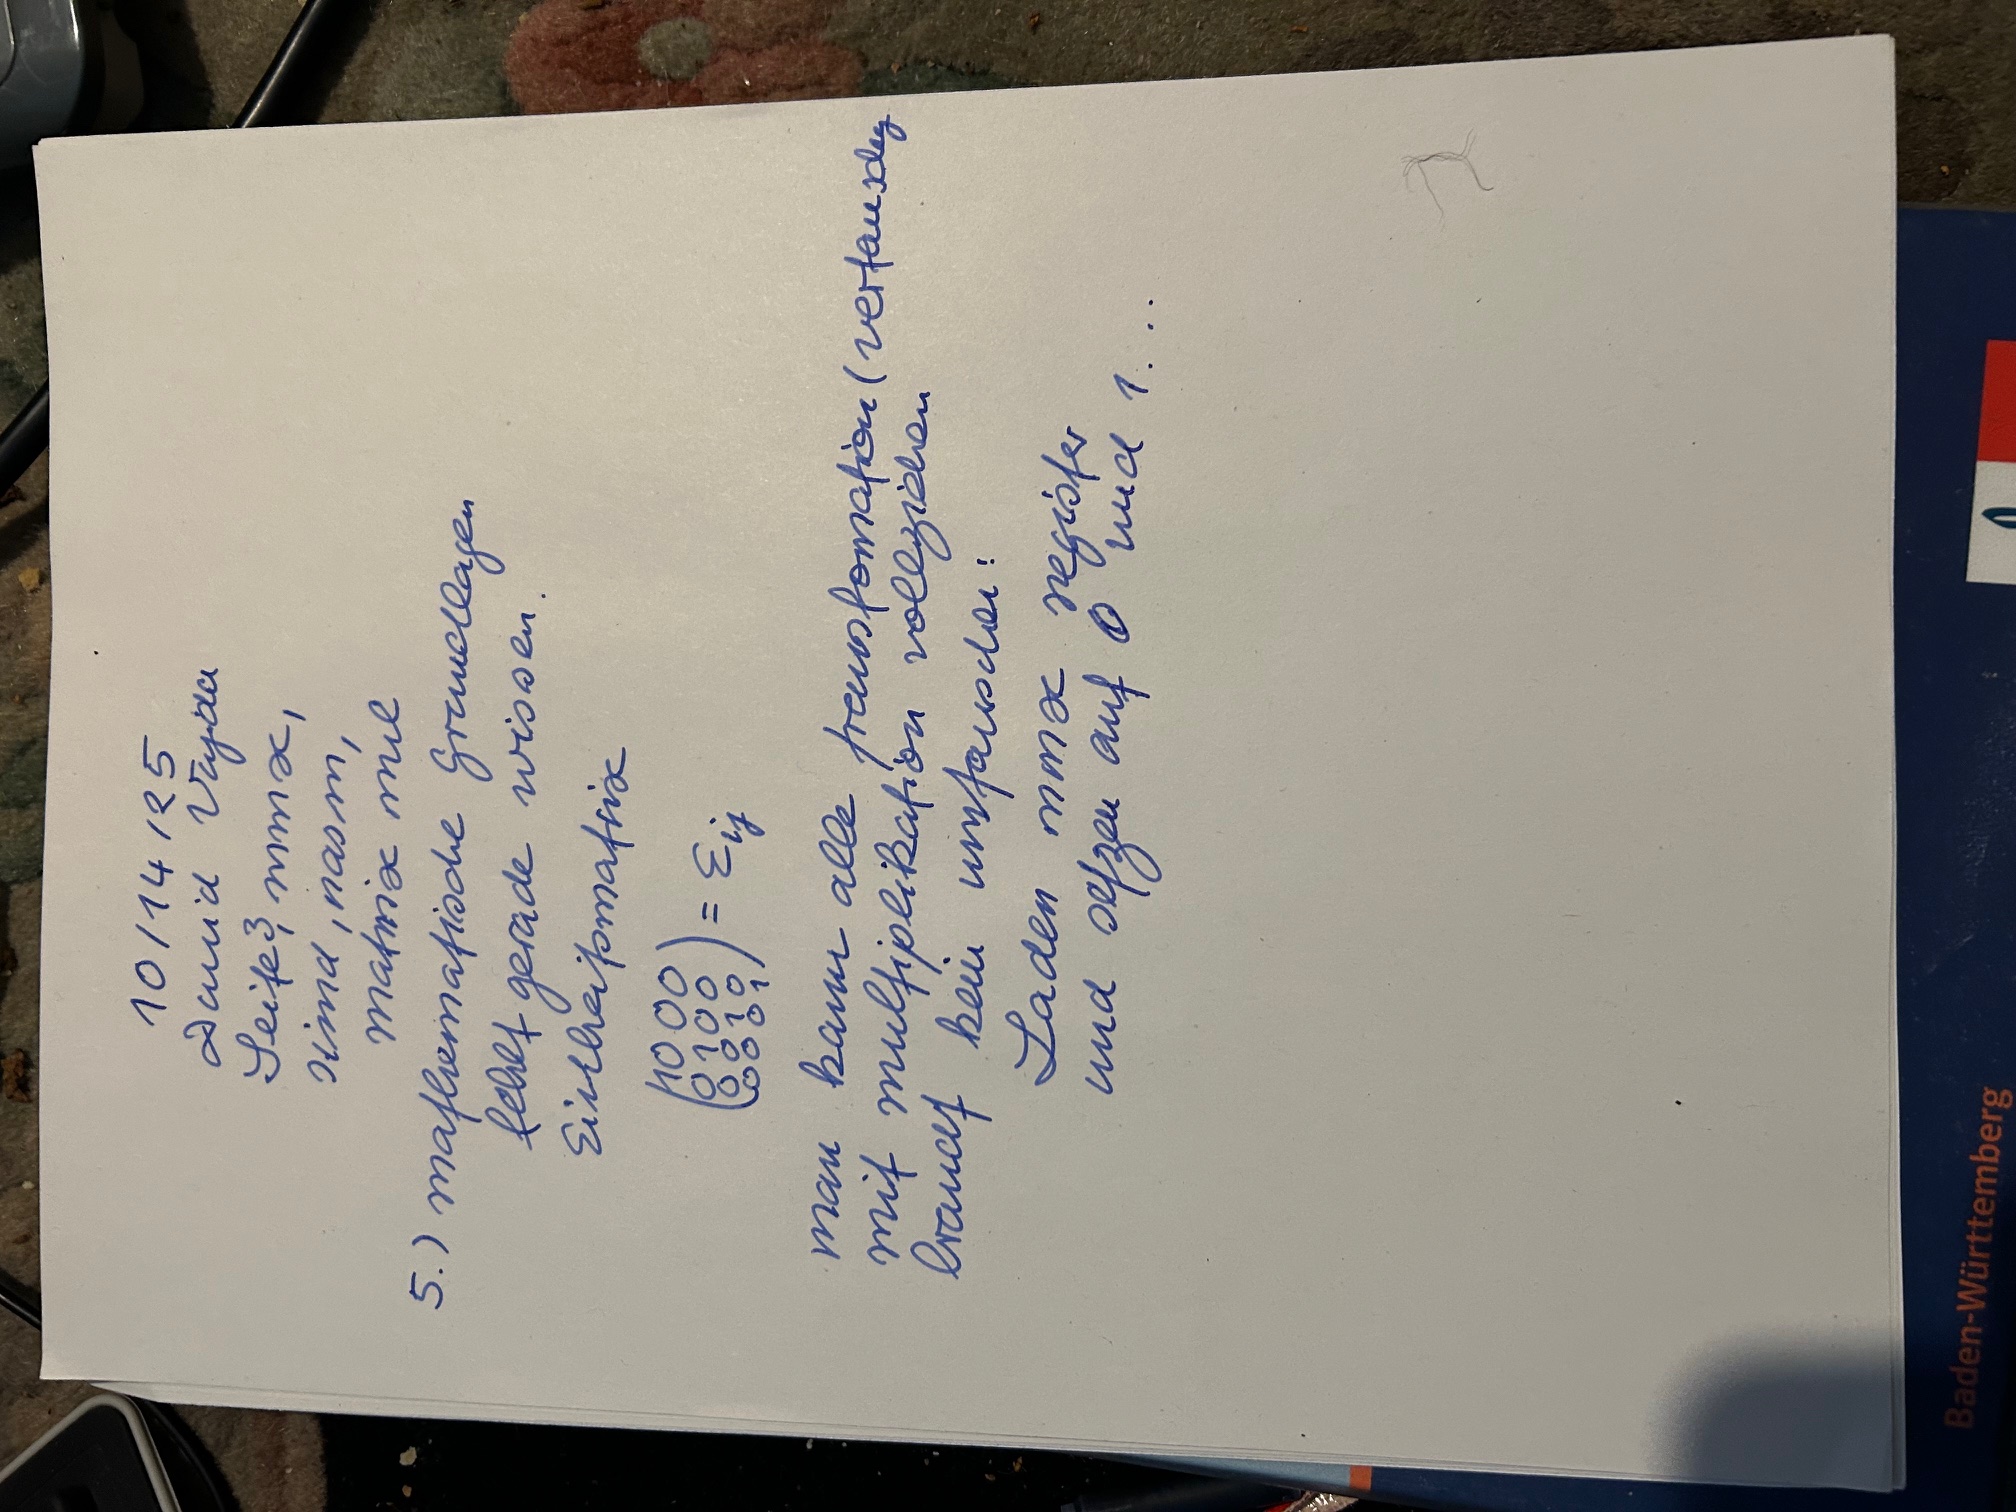 10/14/25
David Vajda
Seite 3, mmx,
simd, nasm,
matrix mul
5.) mathematische Grundlagen
fehlt gerade wissen.
Einheitsmatrix
(1 0 0 0
0 1 0 0
0 0 1 0
0 0 0 1) = Eij
man kann alle transfomation (vertauschg
mit multiplikation vollziehen
braucht kein umtauschen:
Laden mmx register
und setzen auf 0 und 1...
Baden-Württemberg